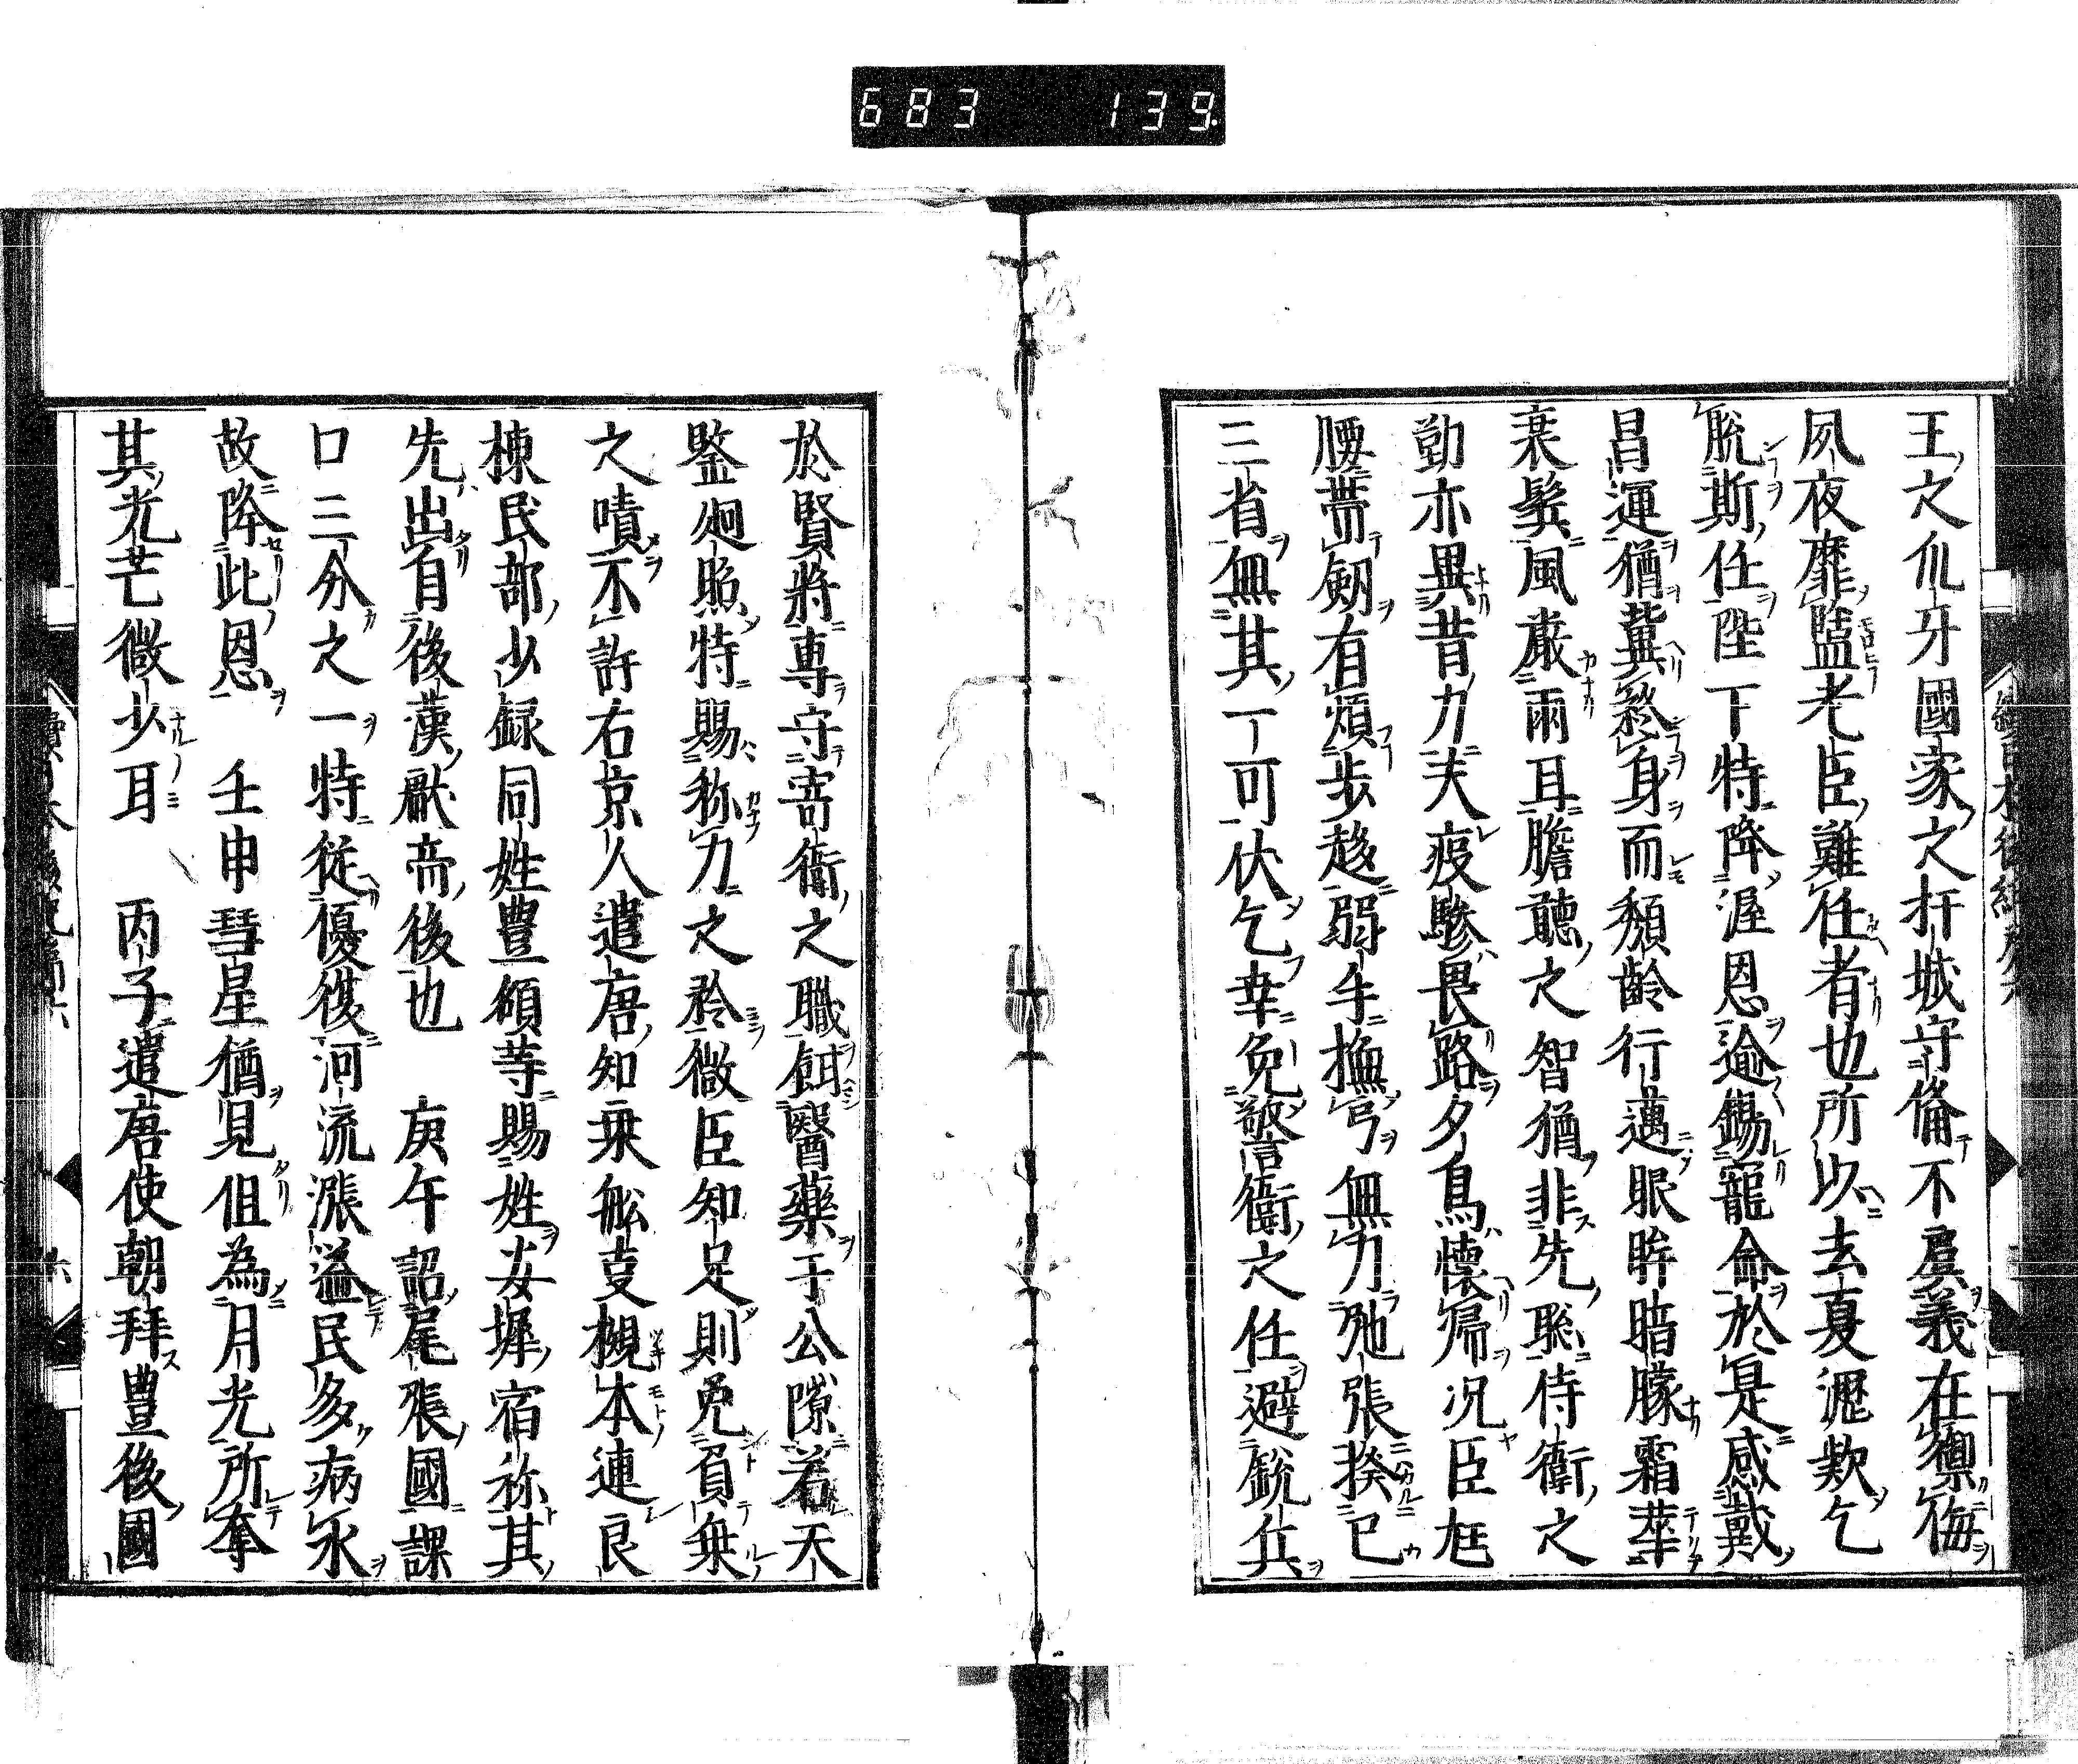 683 139
王之爪牙國家之扞城守俻不虞義在禦侮
夙夜靡盬老臣難任者也所以去夏瀝欵乞
脱斯任陛下特降渥恩逾錫寵命於是感戴
昌運猶冀終身而頽齡行邁眼眸暗朦霜華
衰鬂風嚴兩耳膽聽之智猶非先聡侍衛之
勤亦異昔力夫疲驂畏路夕鳥懷歸况臣尫
腰帶劒有煩歩趍弱手撫弓無力弛張揆已
三省無其一可伏乞幸免警衛之任避銃兵
於賢將専守寄衛之職餌醫藥于公隙若天
鑒廻照特賜称力之矜微臣知足則免負乗
之嘖不許右京人遣唐知乗舩支槻本連良
棟民部少録同姓豊額等賜姓安墀宿祢其
先出自後漢獻帝後也 庚午詔尾張國課
口三分之一特従優復河流漲溢民多病水
故降此恩 壬申彗星猶見但為月光所奪
其光芒微少耳 丙子遣唐使朝拜豊後國